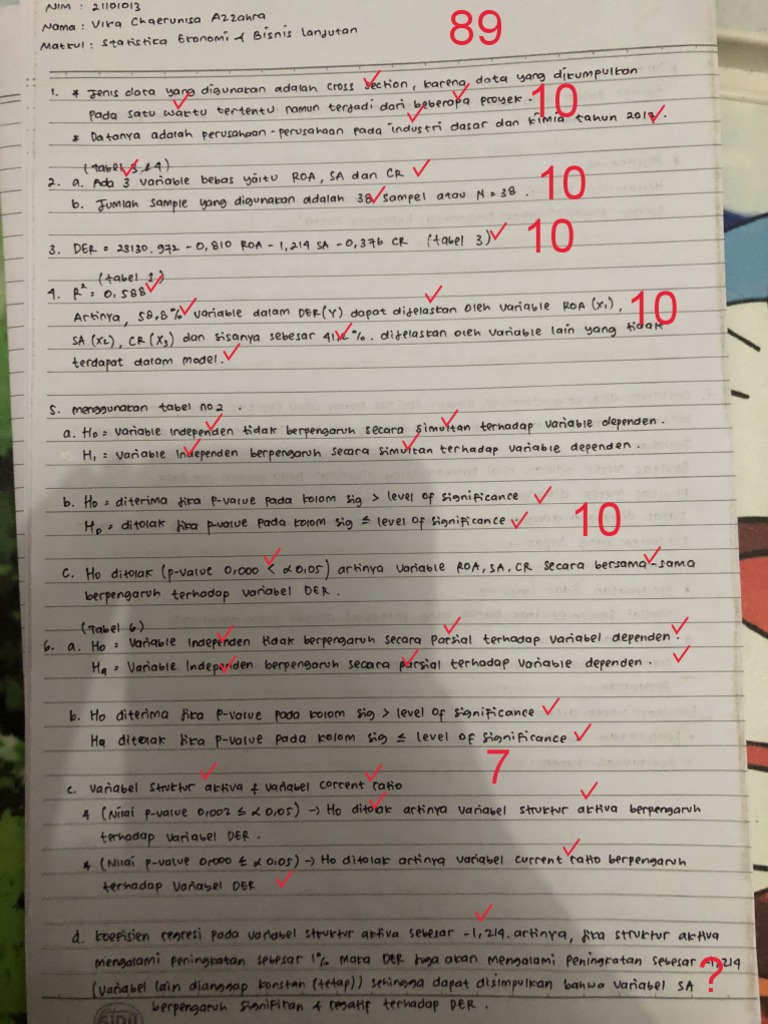 NIM : 21101013
Nama : Vika Chaerunisa Azzahra
Matkul : Statistika Ekonomi & Bisnis Lanjutan
89
1. * Jenis data yang digunakan adalah cross section, karena data yang dikumpulkan
pada satu waktu tertentu namun terjadi dari beberapa proyek. 10
* Datanya adalah perusahaan-perusahaan pada industri dasar dan kimia tahun 2017.
(tabel 3 & 4)
2. a. Ada 3 variable bebas yaitu ROA, SA dan CR
b. Jumlah sample yang digunakan adalah 38 sampel atau N = 38. 10
3. DER = 23130.972 - 0,810 ROA - 1,214 SA - 0,376 CR (tabel 3) 10
(tabel 1)
4. R² = 0,588
Artinya, 58.8% variable dalam DER(Y) dapat dijelaskan oleh variable ROA (X1), 10
SA (X2), CR (X3) dan sisanya sebesar 41,2%. dijelaskan oleh variable lain yang tidak
terdapat dalam model.
5. menggunakan tabel no 2.
a. Ho = variable Independen tidak berpengaruh secara simultan terhadap variable dependen.
H1 = variable Independen berpengaruh secara simultan terhadap variable dependen.
b. Ho = diterima jika p-value pada kolom sig > level of significance
= ditolak jika p-value pada kolom sig ≤ level of significance 10
c. Ho ditolak (p-value 0,000 < α 0,05) artinya variable ROA, SA, CR secara bersama-sama
berpengaruh terhadap variabel DER.
(Tabel 6)
6. a. Ho = Variable Independen tidak berpengaruh secara Parsial terhadap Variabel dependen.
Ha = Variable Independen berpengaruh secara parsial terhadap variable dependen.
b. Ho diterima jika P-value pada kolom sig > level of significance
Ha ditolak jika P-value pada kolom sig ≤ level of significance
7
c. variabel struktur aktiva & variabel corrent ratio
* (Nilai p-value 0,002 ≤ α 0,05) -> Ho ditolak artinya variabel struktur aktiva berpengaruh
terhadap variabel DER.
* (Nilai p-value 0,000 ≤ α 0,05) -> Ho ditolak artinya variabel current ratio berpengaruh
terhadap variabel DER
d. koefisien regresi pada variabel struktur aktiva sebesar -1,214. artinya, jika struktur aktiva
mengalami peningkatan sebesar 1% maka DER juga akan mengalami peningkatan sebesar -1,214
(variabel lain dianggap konstan (tetap)) sehingga dapat disimpulkan bahwa variabel SA ?
berpengaruh signifikan & negatif terhadap DER.